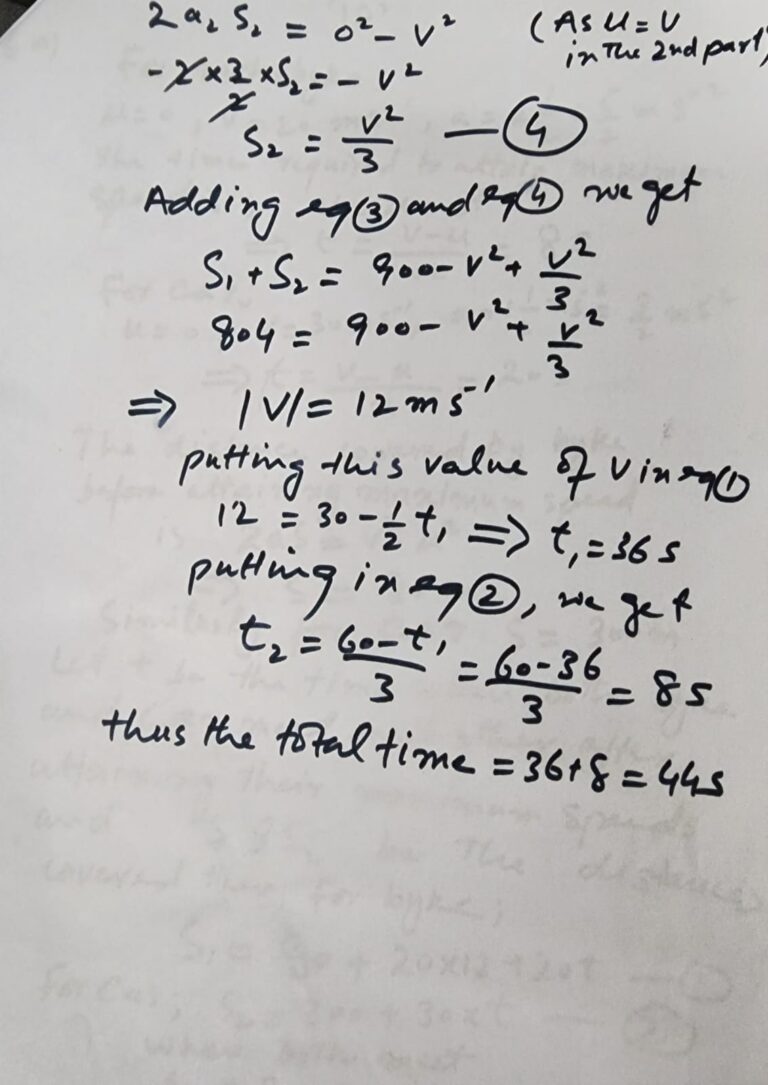 2a₂ S₂ = 0² - v² (As u = v
in the 2nd part)
- 2 × 3/2 × S₂ = - v²
S₂ = v²/3 — ④
Adding eq ③ and eq ④ we get
S₁ + S₂ = 900 - v² + v²/3
804 = 900 - v² + v²/3
⇒ |V| = 12 m s⁻¹
putting this value of v in eq ①
12 = 30 - 1/2 t₁ ⇒ t₁ = 36 s
putting in eq ②, we get
t₂ = (60 - t₁)/3 = (60 - 36)/3 = 8 s
thus the total time = 36 + 8 = 44 s